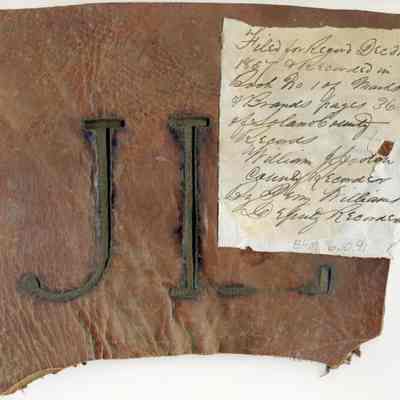 JL
Filed for Record Dec
1857 & Recorded in
Book No 1 of Marks
& Brands pages 36
of Solano County
Records
William J
County Recorder
By Williams
Deputy Recorder